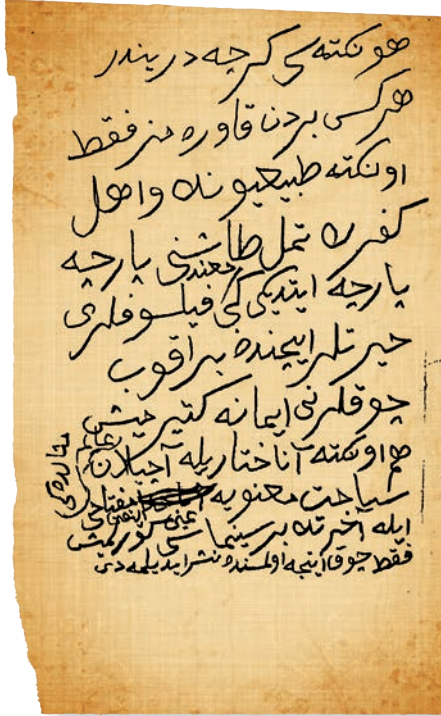 هو نكته سى كرچه دريندر
هركس بردن قاوره مز فقط
او نكته طبيعيونله واهل
كفرك تمل طاشنى پارچه
پارچه ايتديكى كبى معند فيلسوفلرى
حيرتلر ايچنده براقوب
چوقلرنى ايمانه كتيرمش
هم او نكته آناختاريله آچيلان عالم
سياحت معنويه
ايله آخرتله بر سينماسنى كورمش
فقط چوق اينجه اولمسنده نشر ايديلمه دى